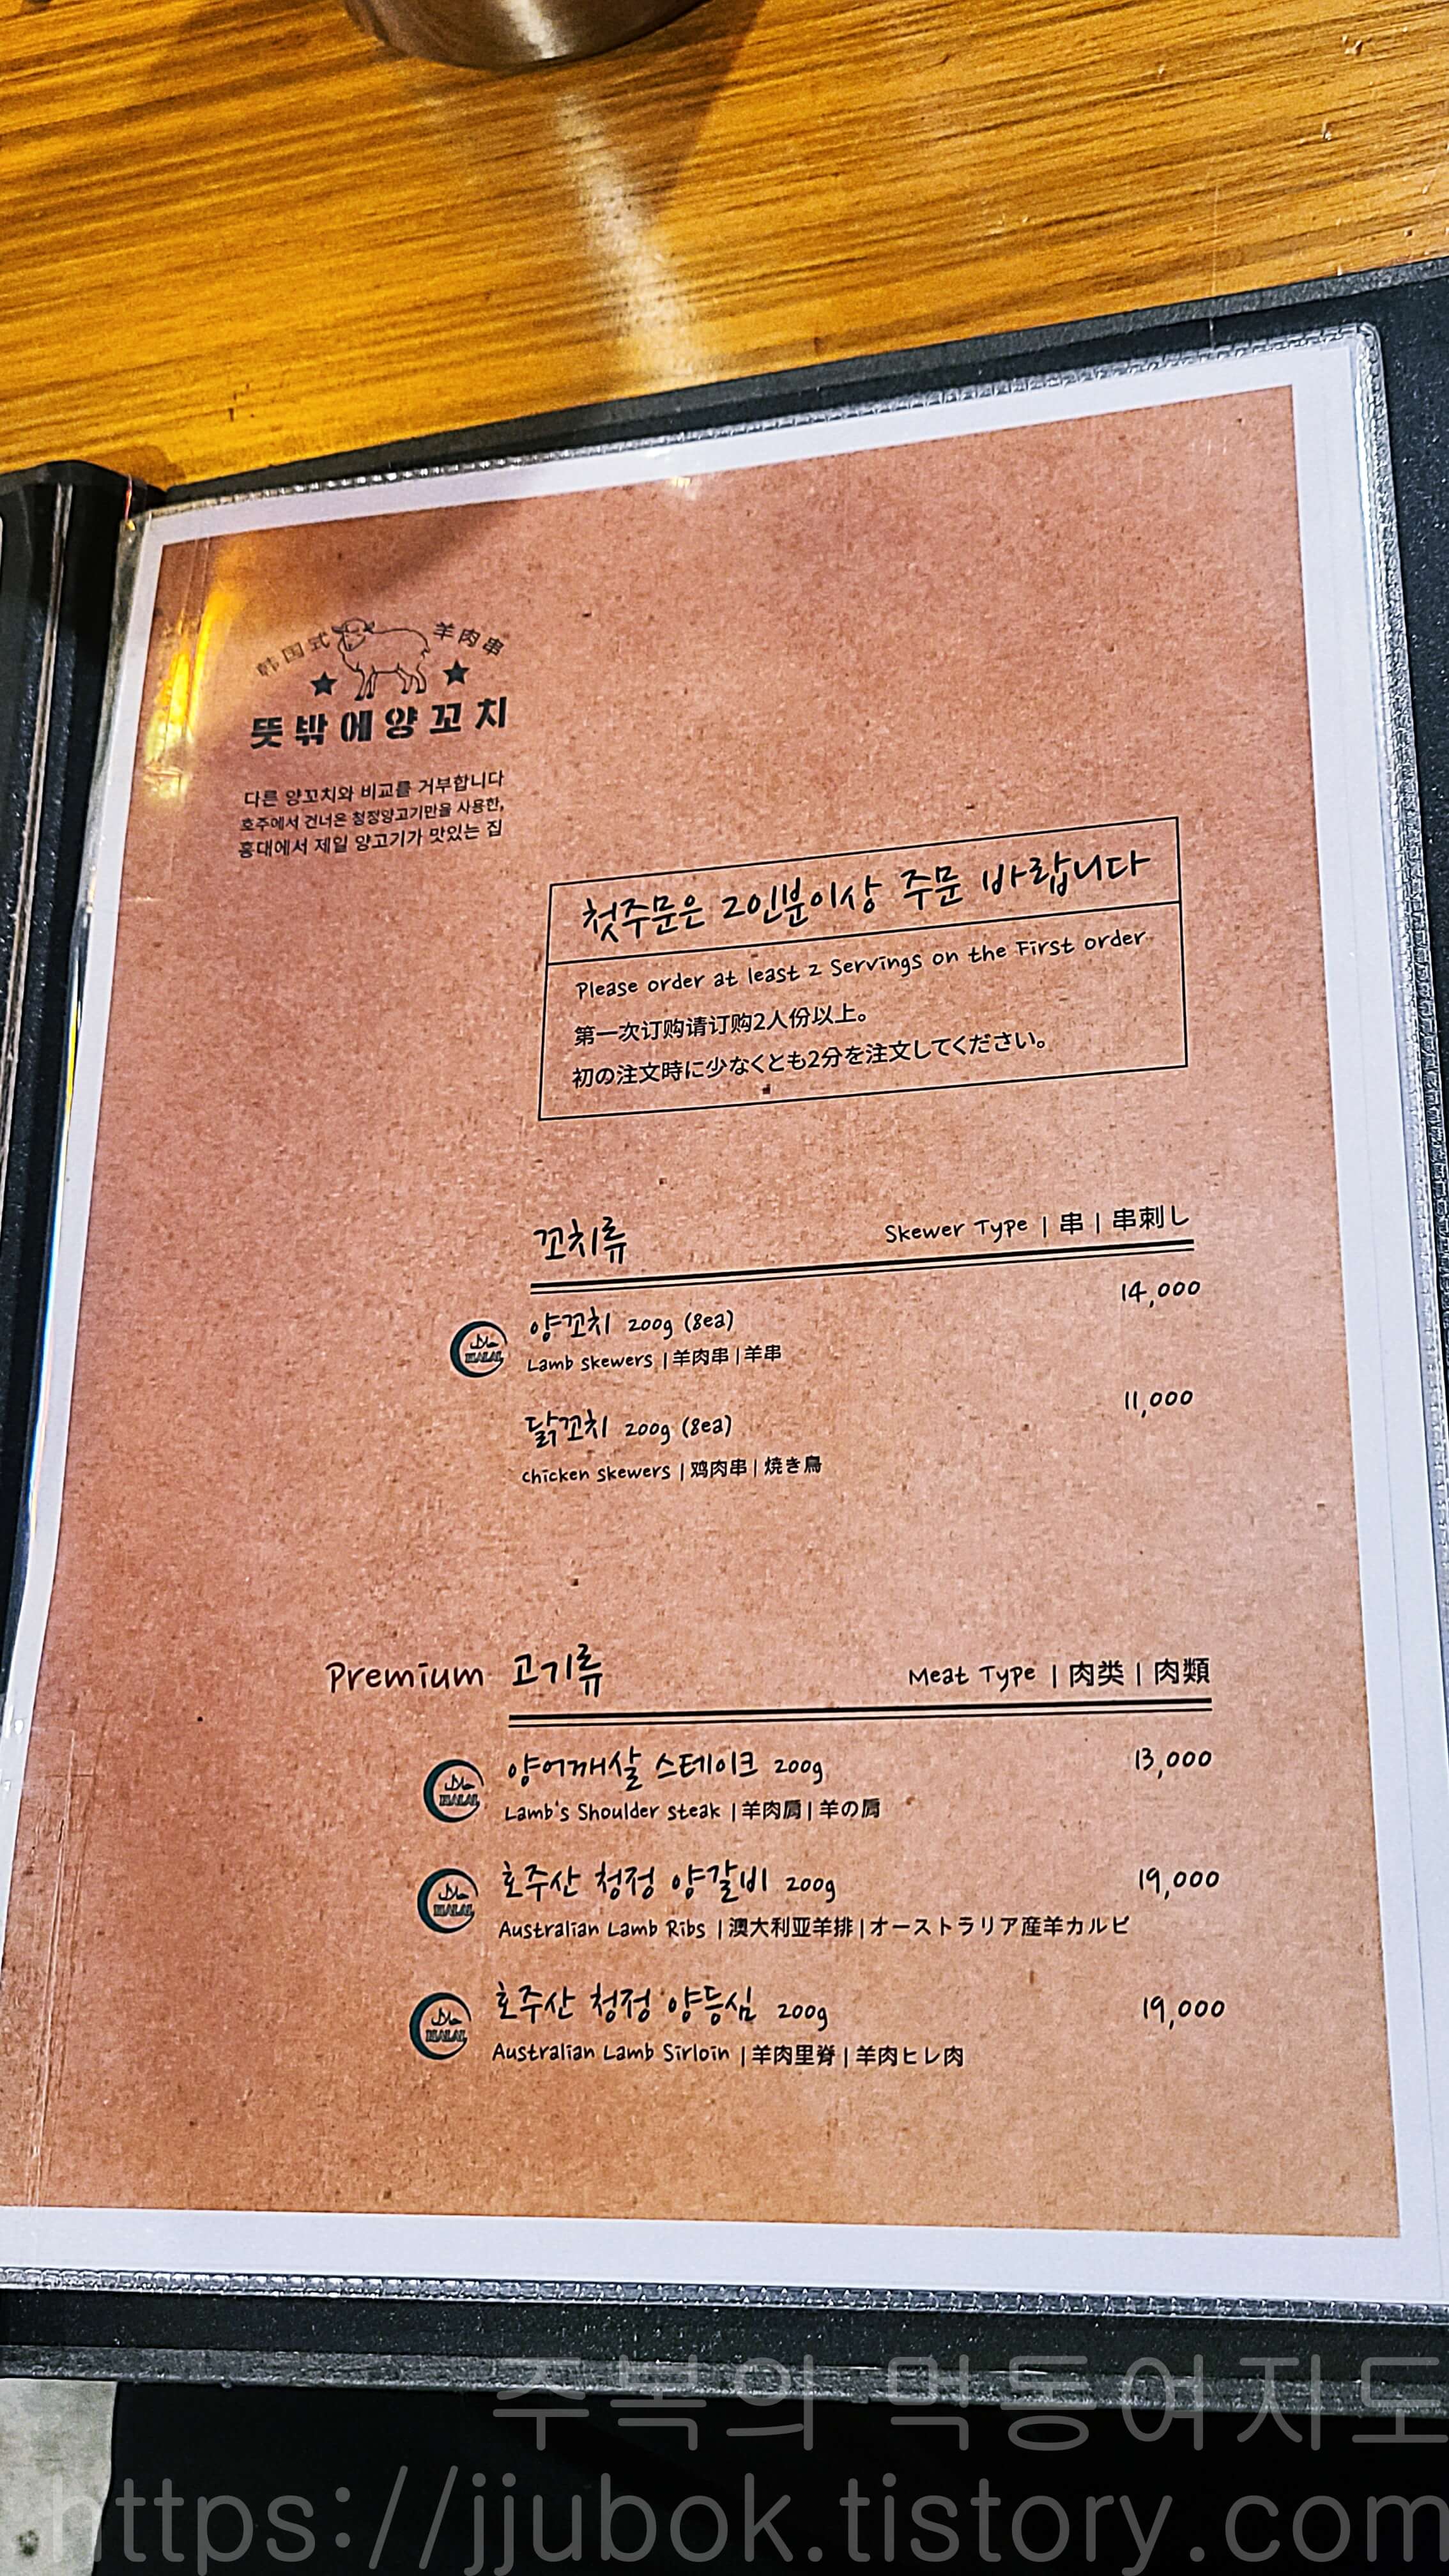 韩国式 羊肉串
뜻밖에양꼬치
다른 양꼬치와 비교를 거부합니다
호주에서 건너온 청정양고기만을 사용한,
홍대에서 제일 양고기가 맛있는 집
첫주문은 2인분이상 주문 바랍니다
Please order at least 2 Servings on the First order
第一次订购请订购2人份以上。
初の注文時に少なくとも2分を注文してください。
꼬치류 Skewer Type | 串 | 串刺し
양꼬치 200g (8ea) 14,000
HALAL Lamb skewers | 羊肉串 | 羊串
닭꼬치 200g (8ea) 11,000
chicken skewers | 鸡肉串 | 焼き鳥
Premium 고기류 Meat Type | 肉类 | 肉類
양어깨살 스테이크 200g 13,000
HALAL Lamb's Shoulder steak | 羊肉肩 | 羊の肩
호주산 청정 양갈비 200g 19,000
HALAL Australian Lamb Ribs | 澳大利亚羊排 | オーストラリア産羊カルビ
호주산 청정 양등심 200g 19,000
HALAL Australian Lamb Sirloin | 羊肉里脊 | 羊肉ヒレ肉
주복의 먹동여지도
https://jjubok.tistory.com